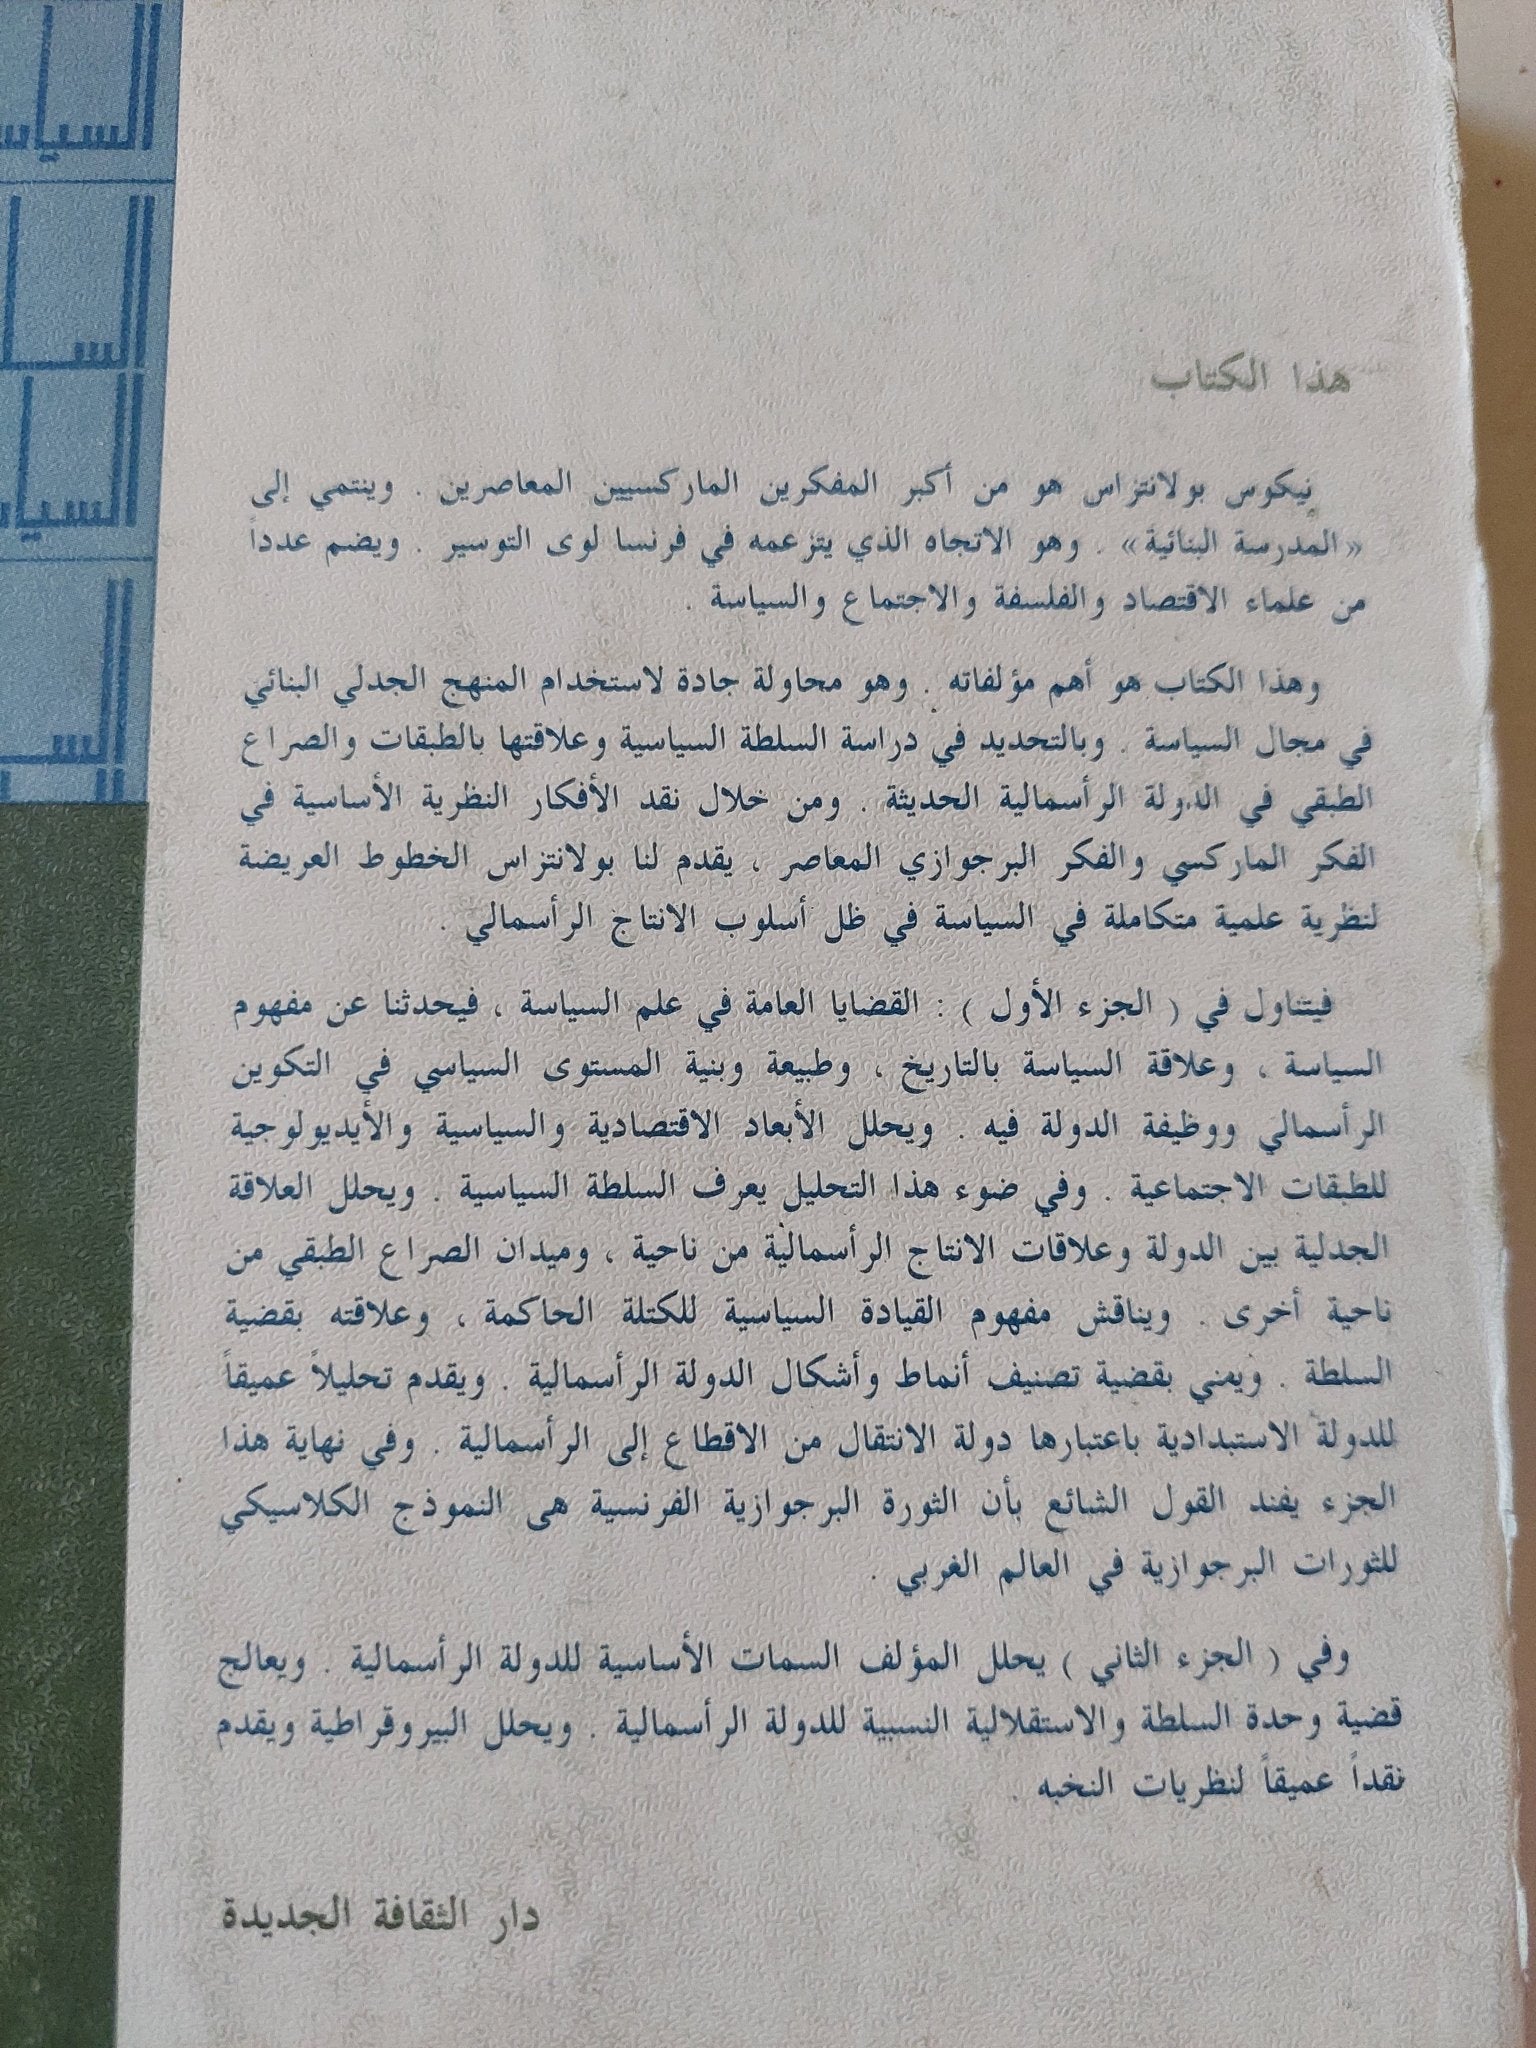 هذا الكتاب
نيكوس بولانتزاس هو من أكبر المفكرين الماركسيين المعاصرين . وينتمي إلى
«المدرسة البنائية» . وهو الاتجاه الذي يتزعمه في فرنسا لوى التوسير . ويضم عدداً
من علماء الاقتصاد والفلسفة والاجتماع والسياسة .
وهذا الكتاب هو أهم مؤلفاته . وهو محاولة جادة لاستخدام المنهج الجدلي البنائي
في مجال السياسة . وبالتحديد في دراسة السلطة السياسية وعلاقتها بالطبقات والصراع
الطبقي في الدولة الرأسمالية الحديثة . ومن خلال نقد الأفكار النظرية الأساسية في
الفكر الماركسي والفكر البرجوازي المعاصر ، يقدم لنا بولانتزاس الخطوط العريضة
لنظرية علمية متكاملة في السياسة في ظل أسلوب الانتاج الرأسمالي .
فيتناول في ( الجزء الأول ) : القضايا العامة في علم السياسة ، فيحدثنا عن مفهوم
السياسة ، وعلاقة السياسة بالتاريخ ، وطبيعة وبنية المستوى السياسي في التكوين
الرأسمالي ووظيفة الدولة فيه . ويحلل الأبعاد الاقتصادية والسياسية والأيديولوجية
للطبقات الاجتماعية . وفي ضوء هذا التحليل يعرف السلطة السياسية . ويحلل العلاقة
الجدلية بين الدولة وعلاقات الانتاج الرأسمالية من ناحية ، وميدان الصراع الطبقي من
ناحية أخرى . ويناقش مفهوم القيادة السياسية للكتلة الحاكمة ، وعلاقته بقضية
السلطة . ويعني بقضية تصنيف أنماط وأشكال الدولة الرأسمالية . ويقدم تحليلاً عميقاً
للدولة الاستبدادية باعتبارها دولة الانتقال من الاقطاع إلى الرأسمالية . وفي نهاية هذا
الجزء يفند القول الشائع بأن الثورة البرجوازية الفرنسية هى النموذج الكلاسيكي
للثورات البرجوازية في العالم الغربي .
وفي ( الجزء الثاني ) يحلل المؤلف السمات الأساسية للدولة الرأسمالية . ويعالج
قضية وحدة السلطة والاستقلالية النسبية للدولة الرأسمالية . ويحلل البيروقراطية ويقدم
نقداً عميقاً لنظريات النخبه .
دار الثقافة الجديدة